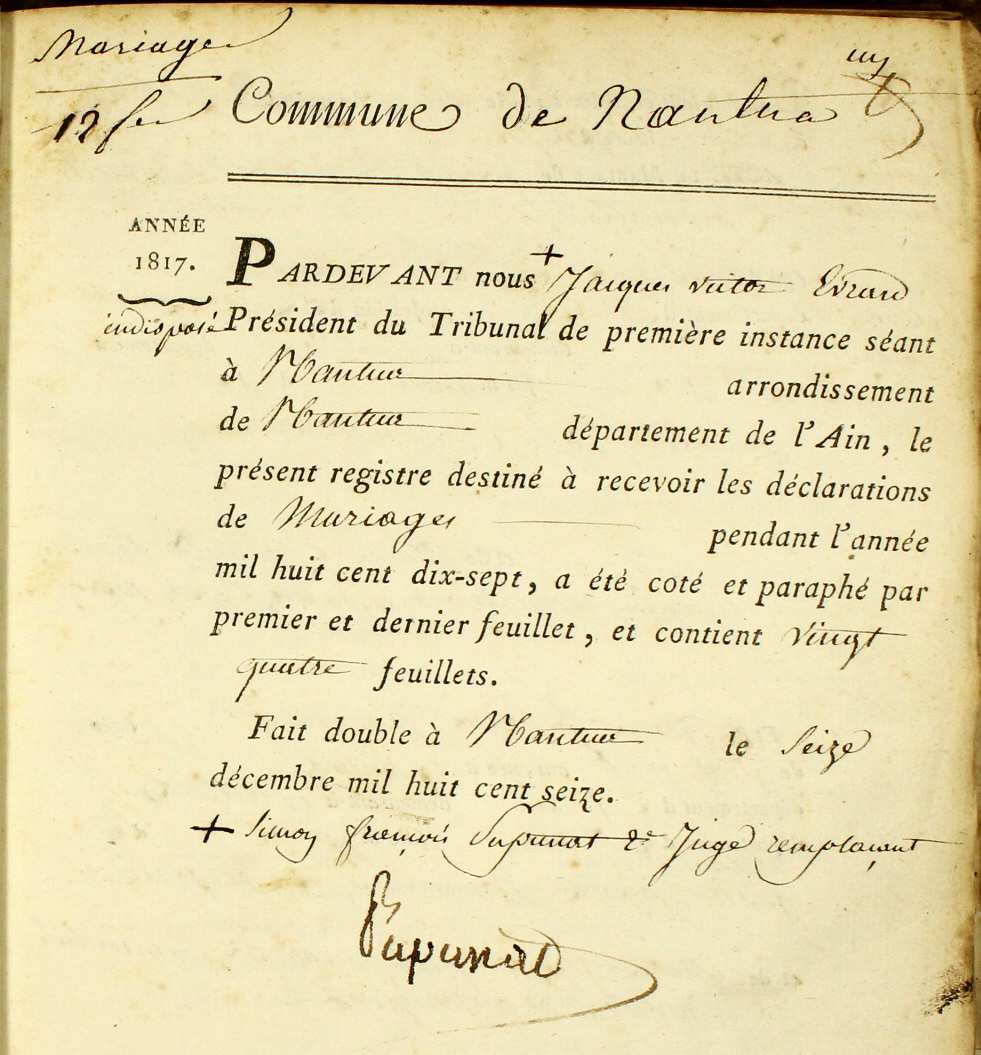 Mariages
Commune de Nantua
ANNÉE
1817.
PARDEVANT nous + Jacques victor Evrard
indisposé
Président du Tribunal de première instance séant
à Nantua arrondissement
de Nantua département de l'Ain, le
présent registre destiné à recevoir les déclarations
de Mariages pendant l'année
mil huit cent dix-sept, a été coté et paraphé par
premier et dernier feuillet, et contient vingt
quatre feuillets.
Fait double à Nantua le Seize
décembre mil huit cent seize.
+ Simon françois 2e Juge remplaçant